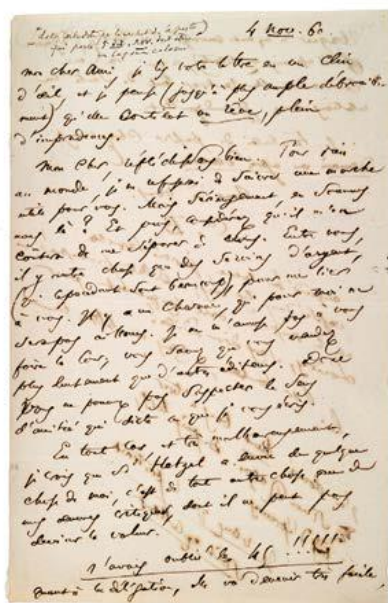 4 Nov. 60.
mon cher Ami, j'ai lu votre lettre en un clin
d'œil, et je pense (jusqu'à plus ample
qu'elle contient un rêve, plein
d'imprudences.
Mon cher, réfléchissons bien. Pour rien
au monde, je ne refuserai de suivre une marche
utile pour vous. Mais sérieusement en sommes
nous là ? Et puis, considérez qu'il m'en
coûtera de me séparer de vous. Entre nous,
il y a autre chose que des services d'argent,
(qui cependant sont beaucoup) pour me lier
à vous. Il y a un charme, qui pour moi ne
sera pas ailleurs. Je ne m'amuse pas à vous
faire la cour, vous savez que vous vendez
plus lentement que d'autres éditeurs. Donc
vous ne pouvez pas suspecter le sens
d'amitié qui dicte ce que je vous écris.
En tout cas, et très malheureusement,
je crois que si Hetzel a envie de quelque
chose de moi, c'est de tout autre chose que de
mes œuvres critiques, dont il ne peut pas
deviner la valeur.
J'avais oublié les 45 !!!!!
quant à la délégation, elle va devenir très facile,